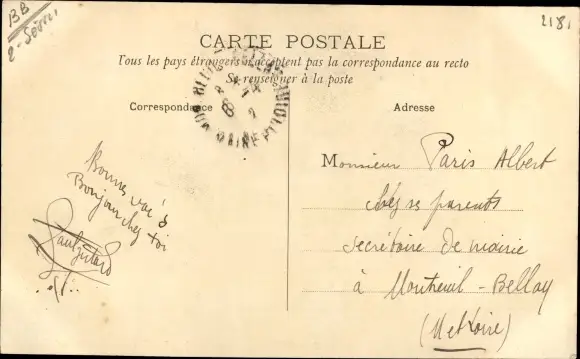 BB
2-Sèvres
2181
CARTE POSTALE
Tous les pays étrangers n'acceptent pas la correspondance au recto
Se renseigner à la poste
Correspondance
Adresse
Bonnes vac s
Bonjour chez toi
Monsieur Paris Albert
chez ses parents
secrétaire de mairie
à Montreuil-Bellay
(M et Loire)